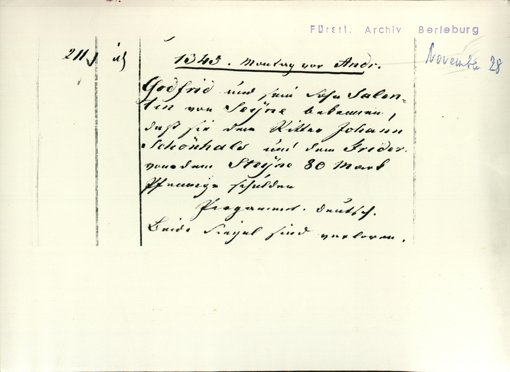 Fürstl. Archiv Berleburg
November 28
211
1343. Montag vor Andr.
Godfrid und sein Sohn Salen-
tin von Seyne bekennen,
daß sie dem Ritter Johann
Schonhals und dem Frider
von dem Steyne 80 Mark
Pfennige schulden
Pergament. Deutsch.
Beide Siegel sind verloren.